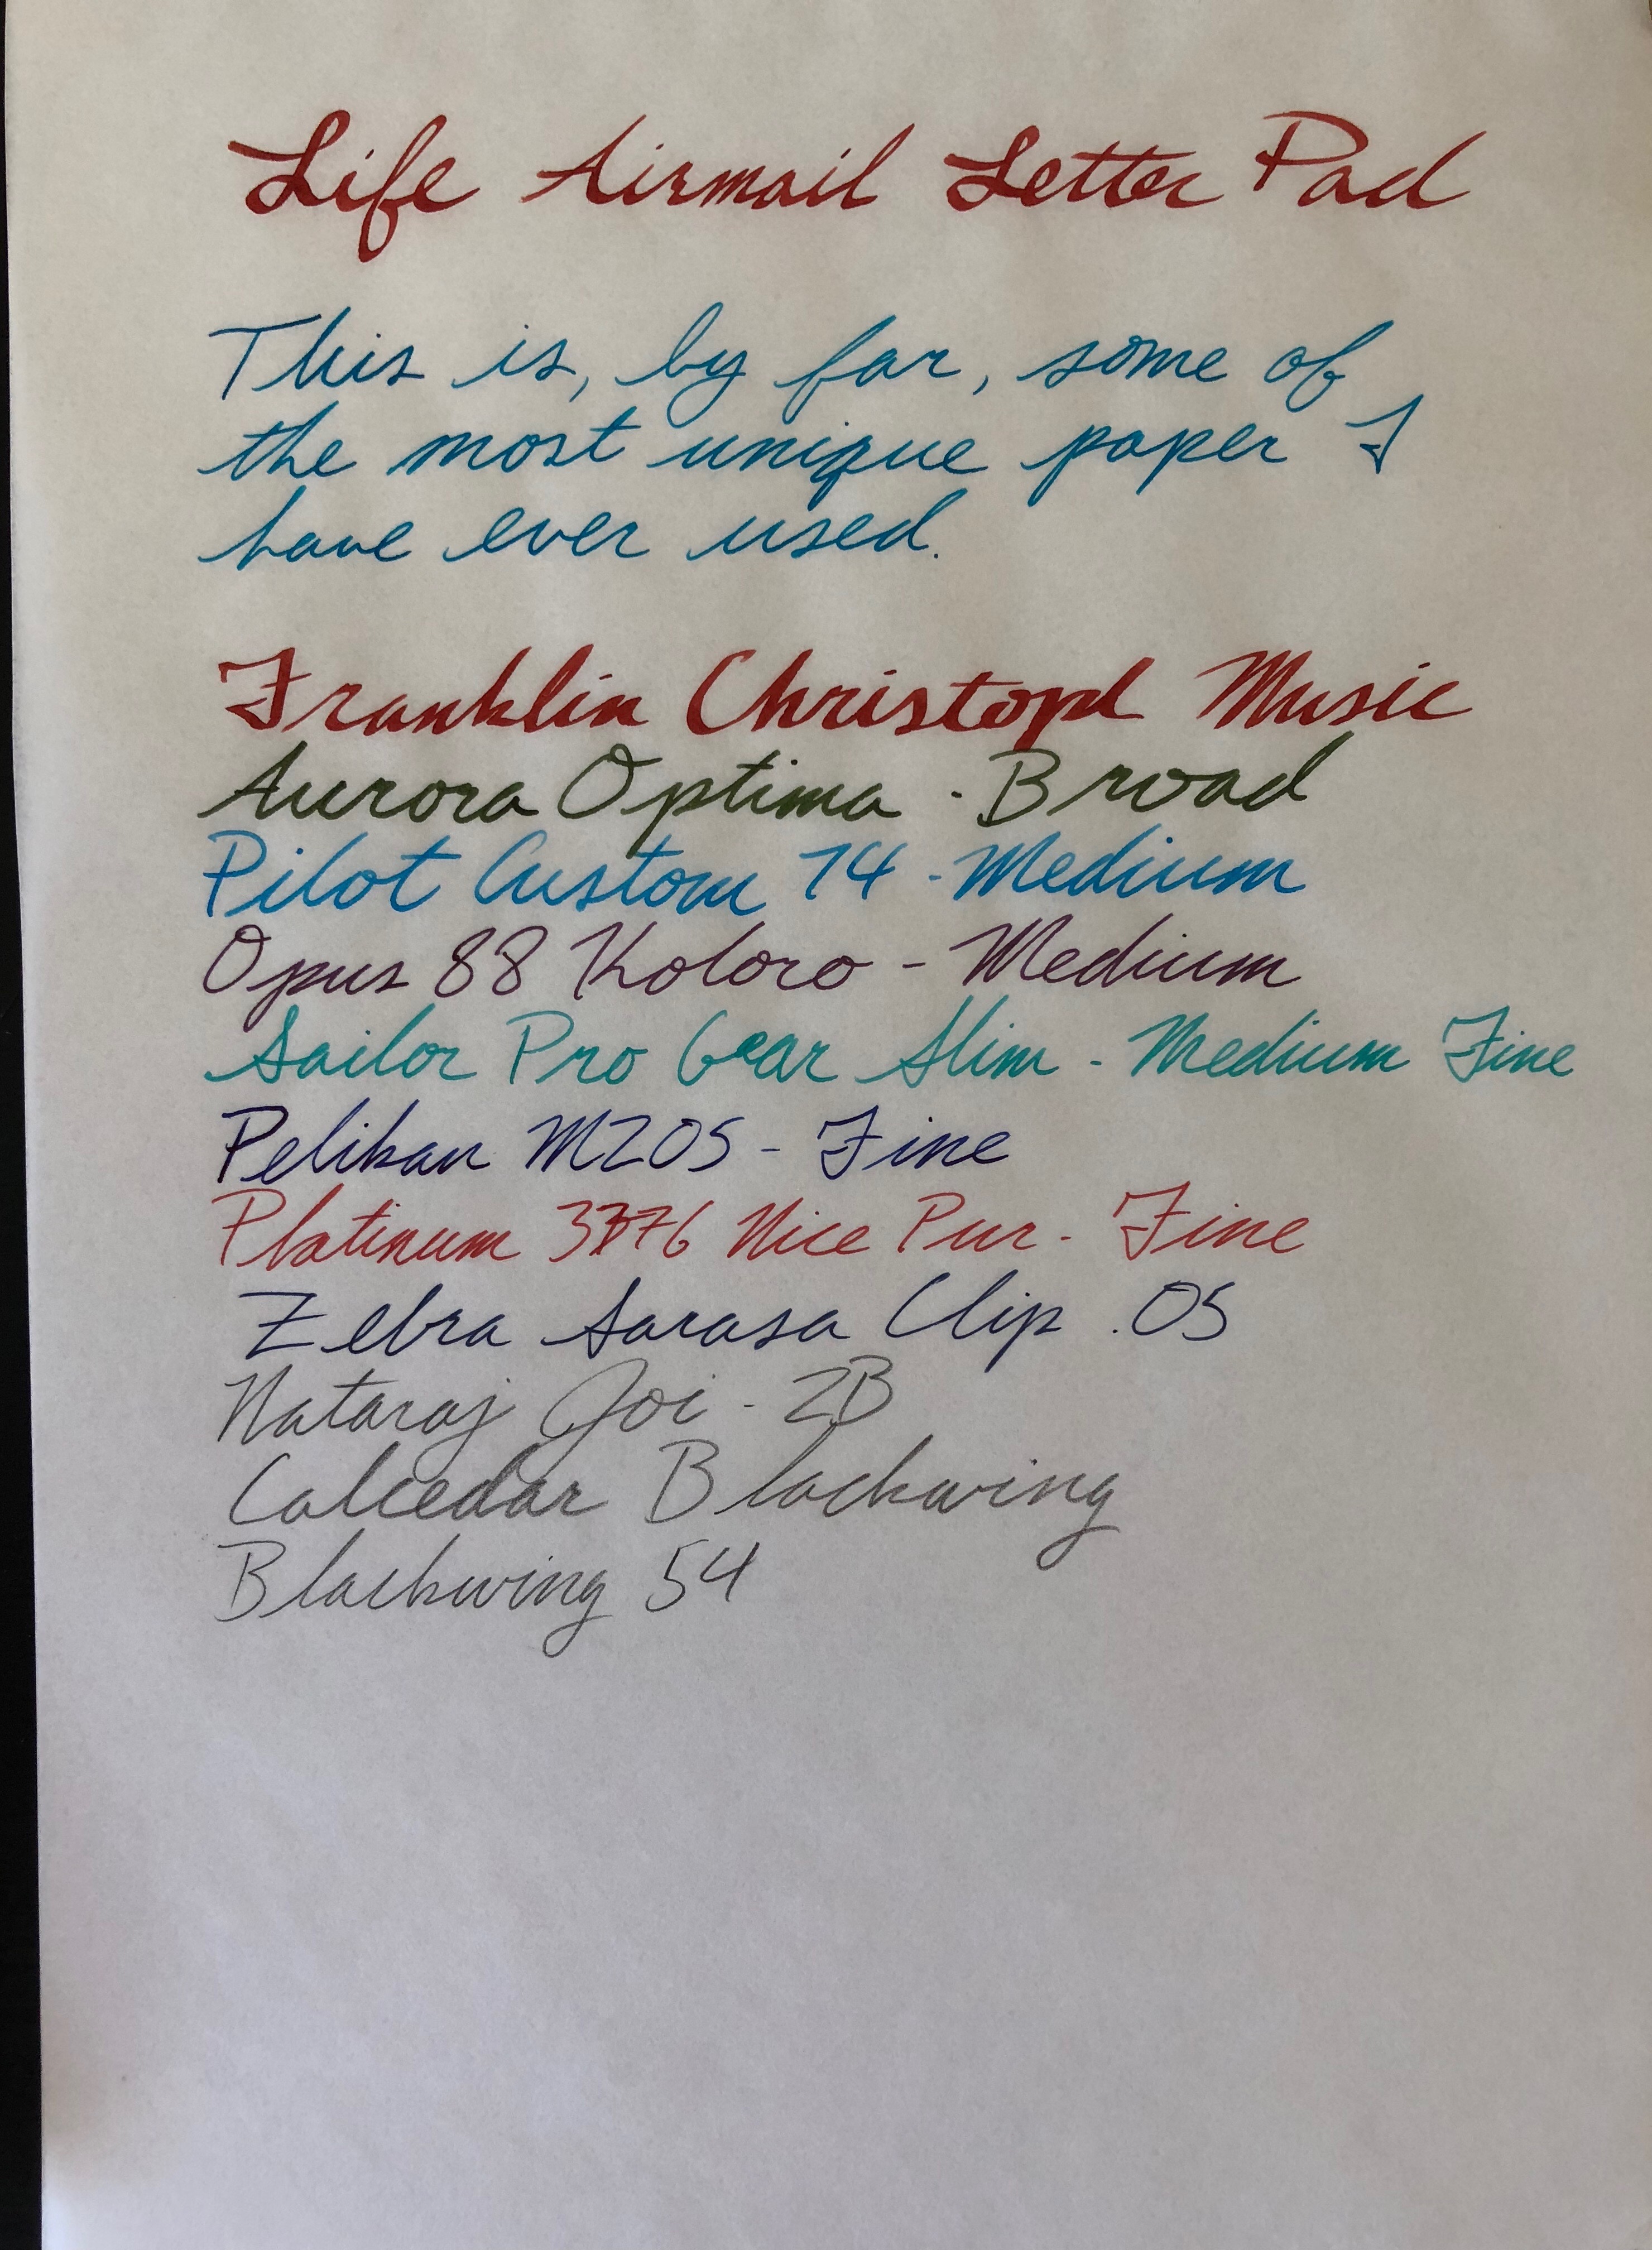 Life Airmail Letter Pad
This is, by far, some of
the most unique paper I
have ever used.
Franklin Christoph Music
Aurora Optima - Broad
Pilot Custom 74 - Medium
Opus 88 Koloro - Medium
Sailor Pro Gear Slim - Medium Fine
Pelikan M205 - Fine
Platinum 3776 Nice Pur - Fine
Zebra Sarasa Clip .05
Nataraj Joi - 2B
Calcedar Blackwing
Blackwing 54